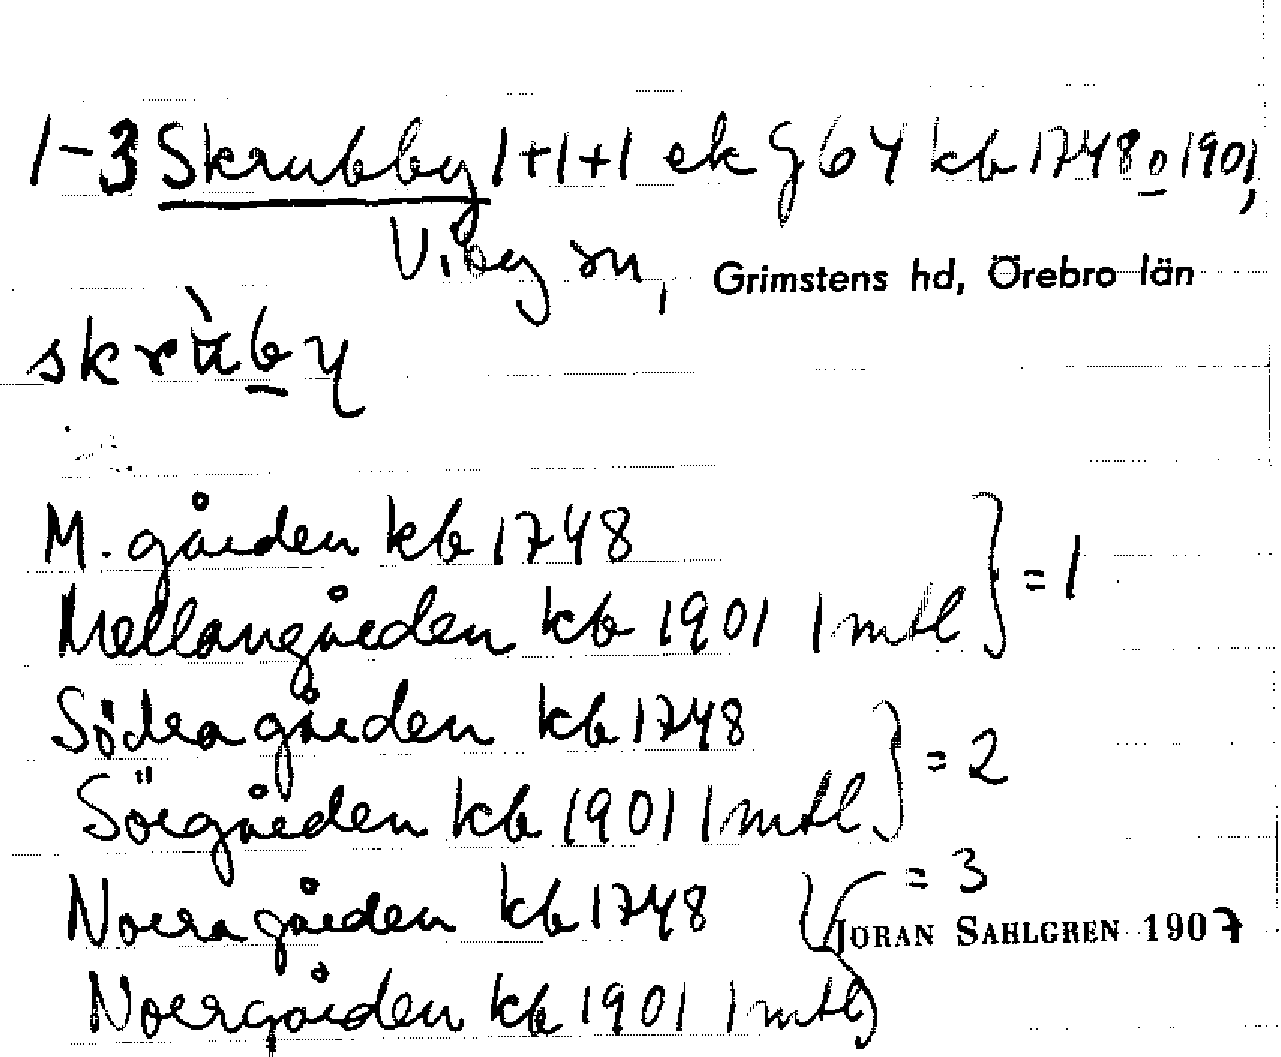 1-3 Skrubby 1+1+1 ek G 64 kb 1748 o 1901,
Viby sn, Grimstens hd, Örebro län
skrùby
M. gården kb 1748
Mellangården kb 1901 1 mtl } = 1
Södra gården kb 1748
Sörgården kb 1901 1 mtl } = 2
Norra gården kb 1748 } = 3
JÖRAN SAHLGREN 1907
Norrgården kb 1901 1 mtl